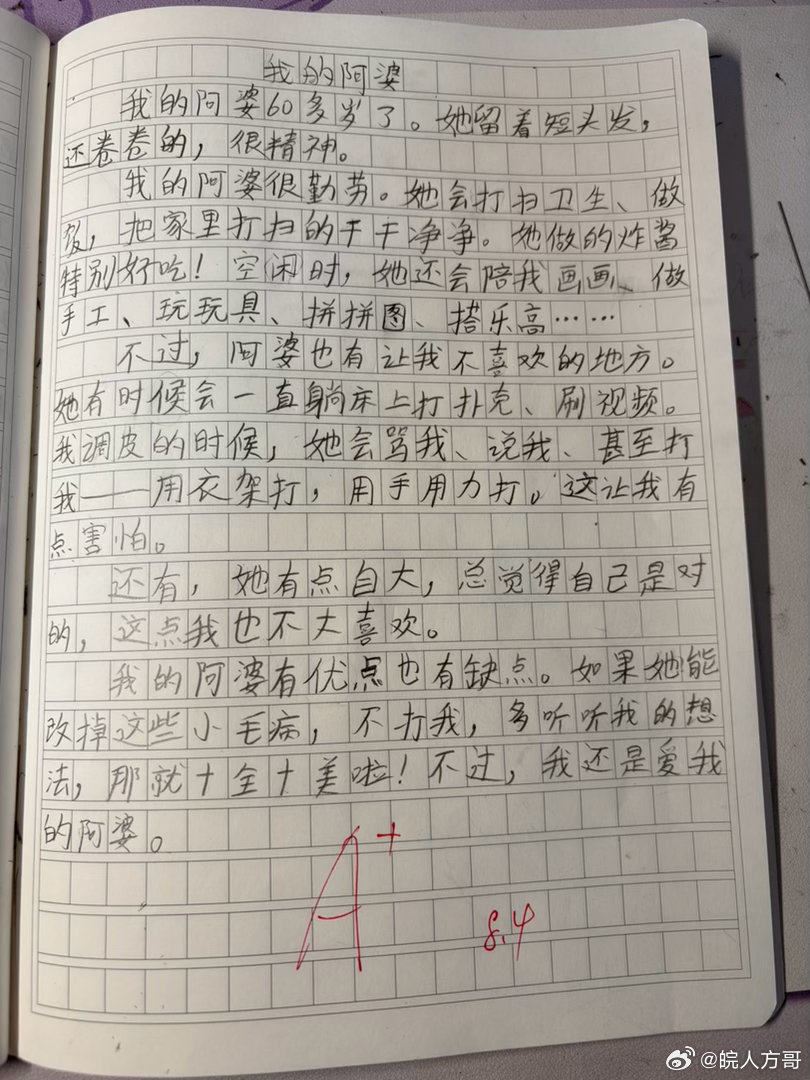 我的阿婆
我的阿婆60多岁了。她留着短头发，
还卷卷的，很精神。
我的阿婆很勤劳。她会打扫卫生、做
饭，把家里打扫的干干净净。她做的炸酱
特别好吃！空闲时，她还会陪我画画、做
手工、玩玩具、拼拼图、搭乐高……
不过，阿婆也有让我不喜欢的地方。
她有时候会一直躺床上打扑克、刷视频。
我调皮的时候，她会骂我、说我、甚至打
我——用衣架打，用手用力打。这让我有
点害怕。
还有，她有点自大，总觉得自己是对
的，这点我也不大喜欢。
我的阿婆有优点也有缺点。如果她能
改掉这些小毛病，不打我，多听听我的想
法，那就十全十美啦！不过，我还是爱我
的阿婆。
A+
8.4
@皖人方哥